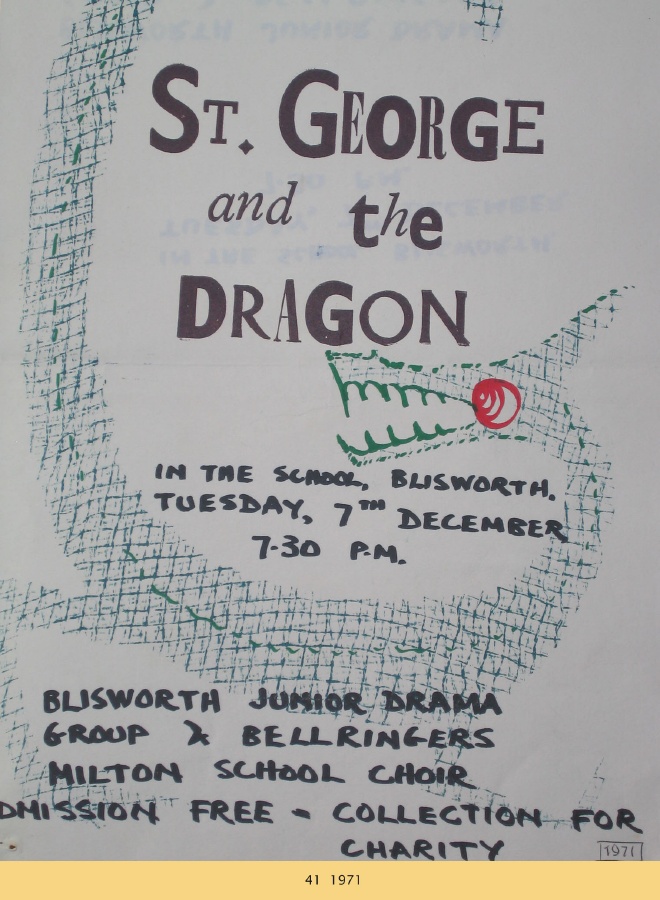 ST. GEORGE
and the
DRAGON
IN THE SCHOOL, BLISWORTH.
TUESDAY, 7TH DECEMBER
7.30 P.M.
BLISWORTH JUNIOR DRAMA
GROUP & BELLRINGERS
MILTON SCHOOL CHOIR
DMISSION FREE - COLLECTION FOR
CHARITY
1971
41 1971